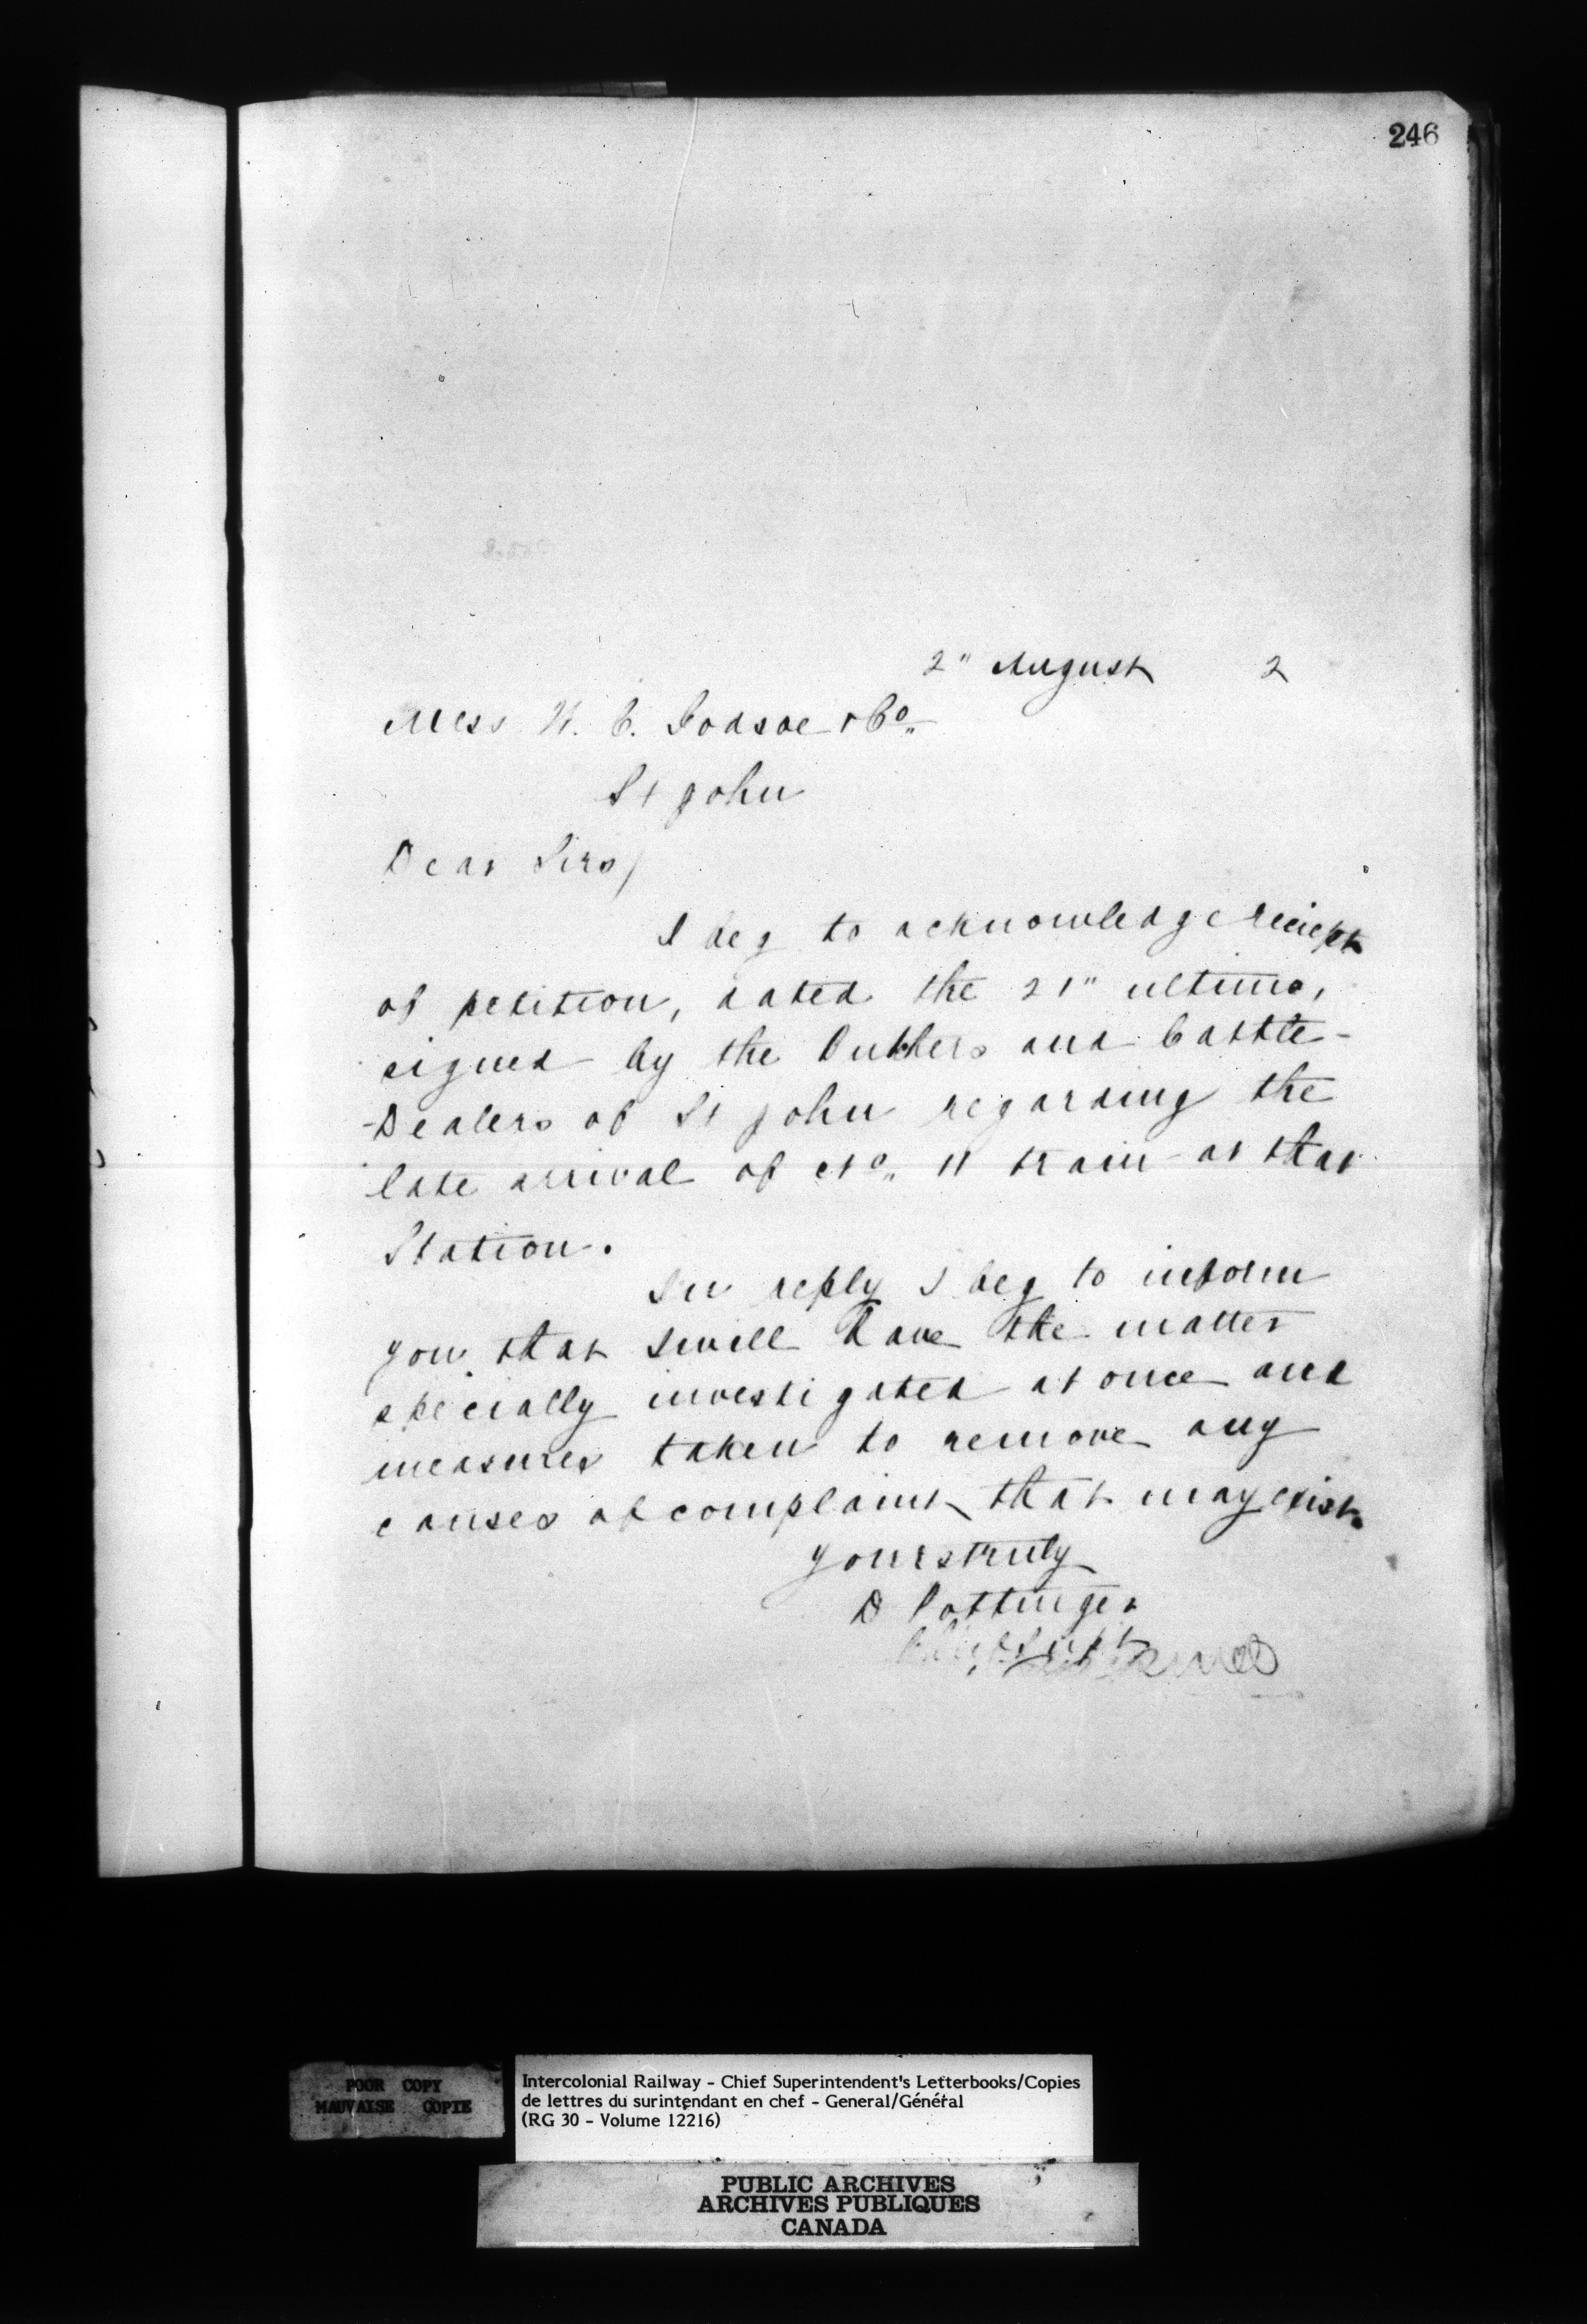 246
2" August 2
Mess W. C. Godsoe & Co.
St John
Dear Sirs/
I beg to acknowledge reciept
of petition, dated the 21" ultimo,
signed by the Butchers and Cattle-
-Dealers of St John regarding the
late arrival of No. 11 train at that
Station.
In reply I beg to inform
you that I will have the matter
specially investigated at once and
measures taken to remove any
causes of complaint that may exist.
Yours truly
D Pottinger
Chief Supt
POOR COPY
MAUVAISE COPIE
Intercolonial Railway - Chief Superintendent's Letterbooks/Copies
de lettres du surintendant en chef - General/Général
(RG 30 - Volume 12216)
PUBLIC ARCHIVES
ARCHIVES PUBLIQUES
CANADA